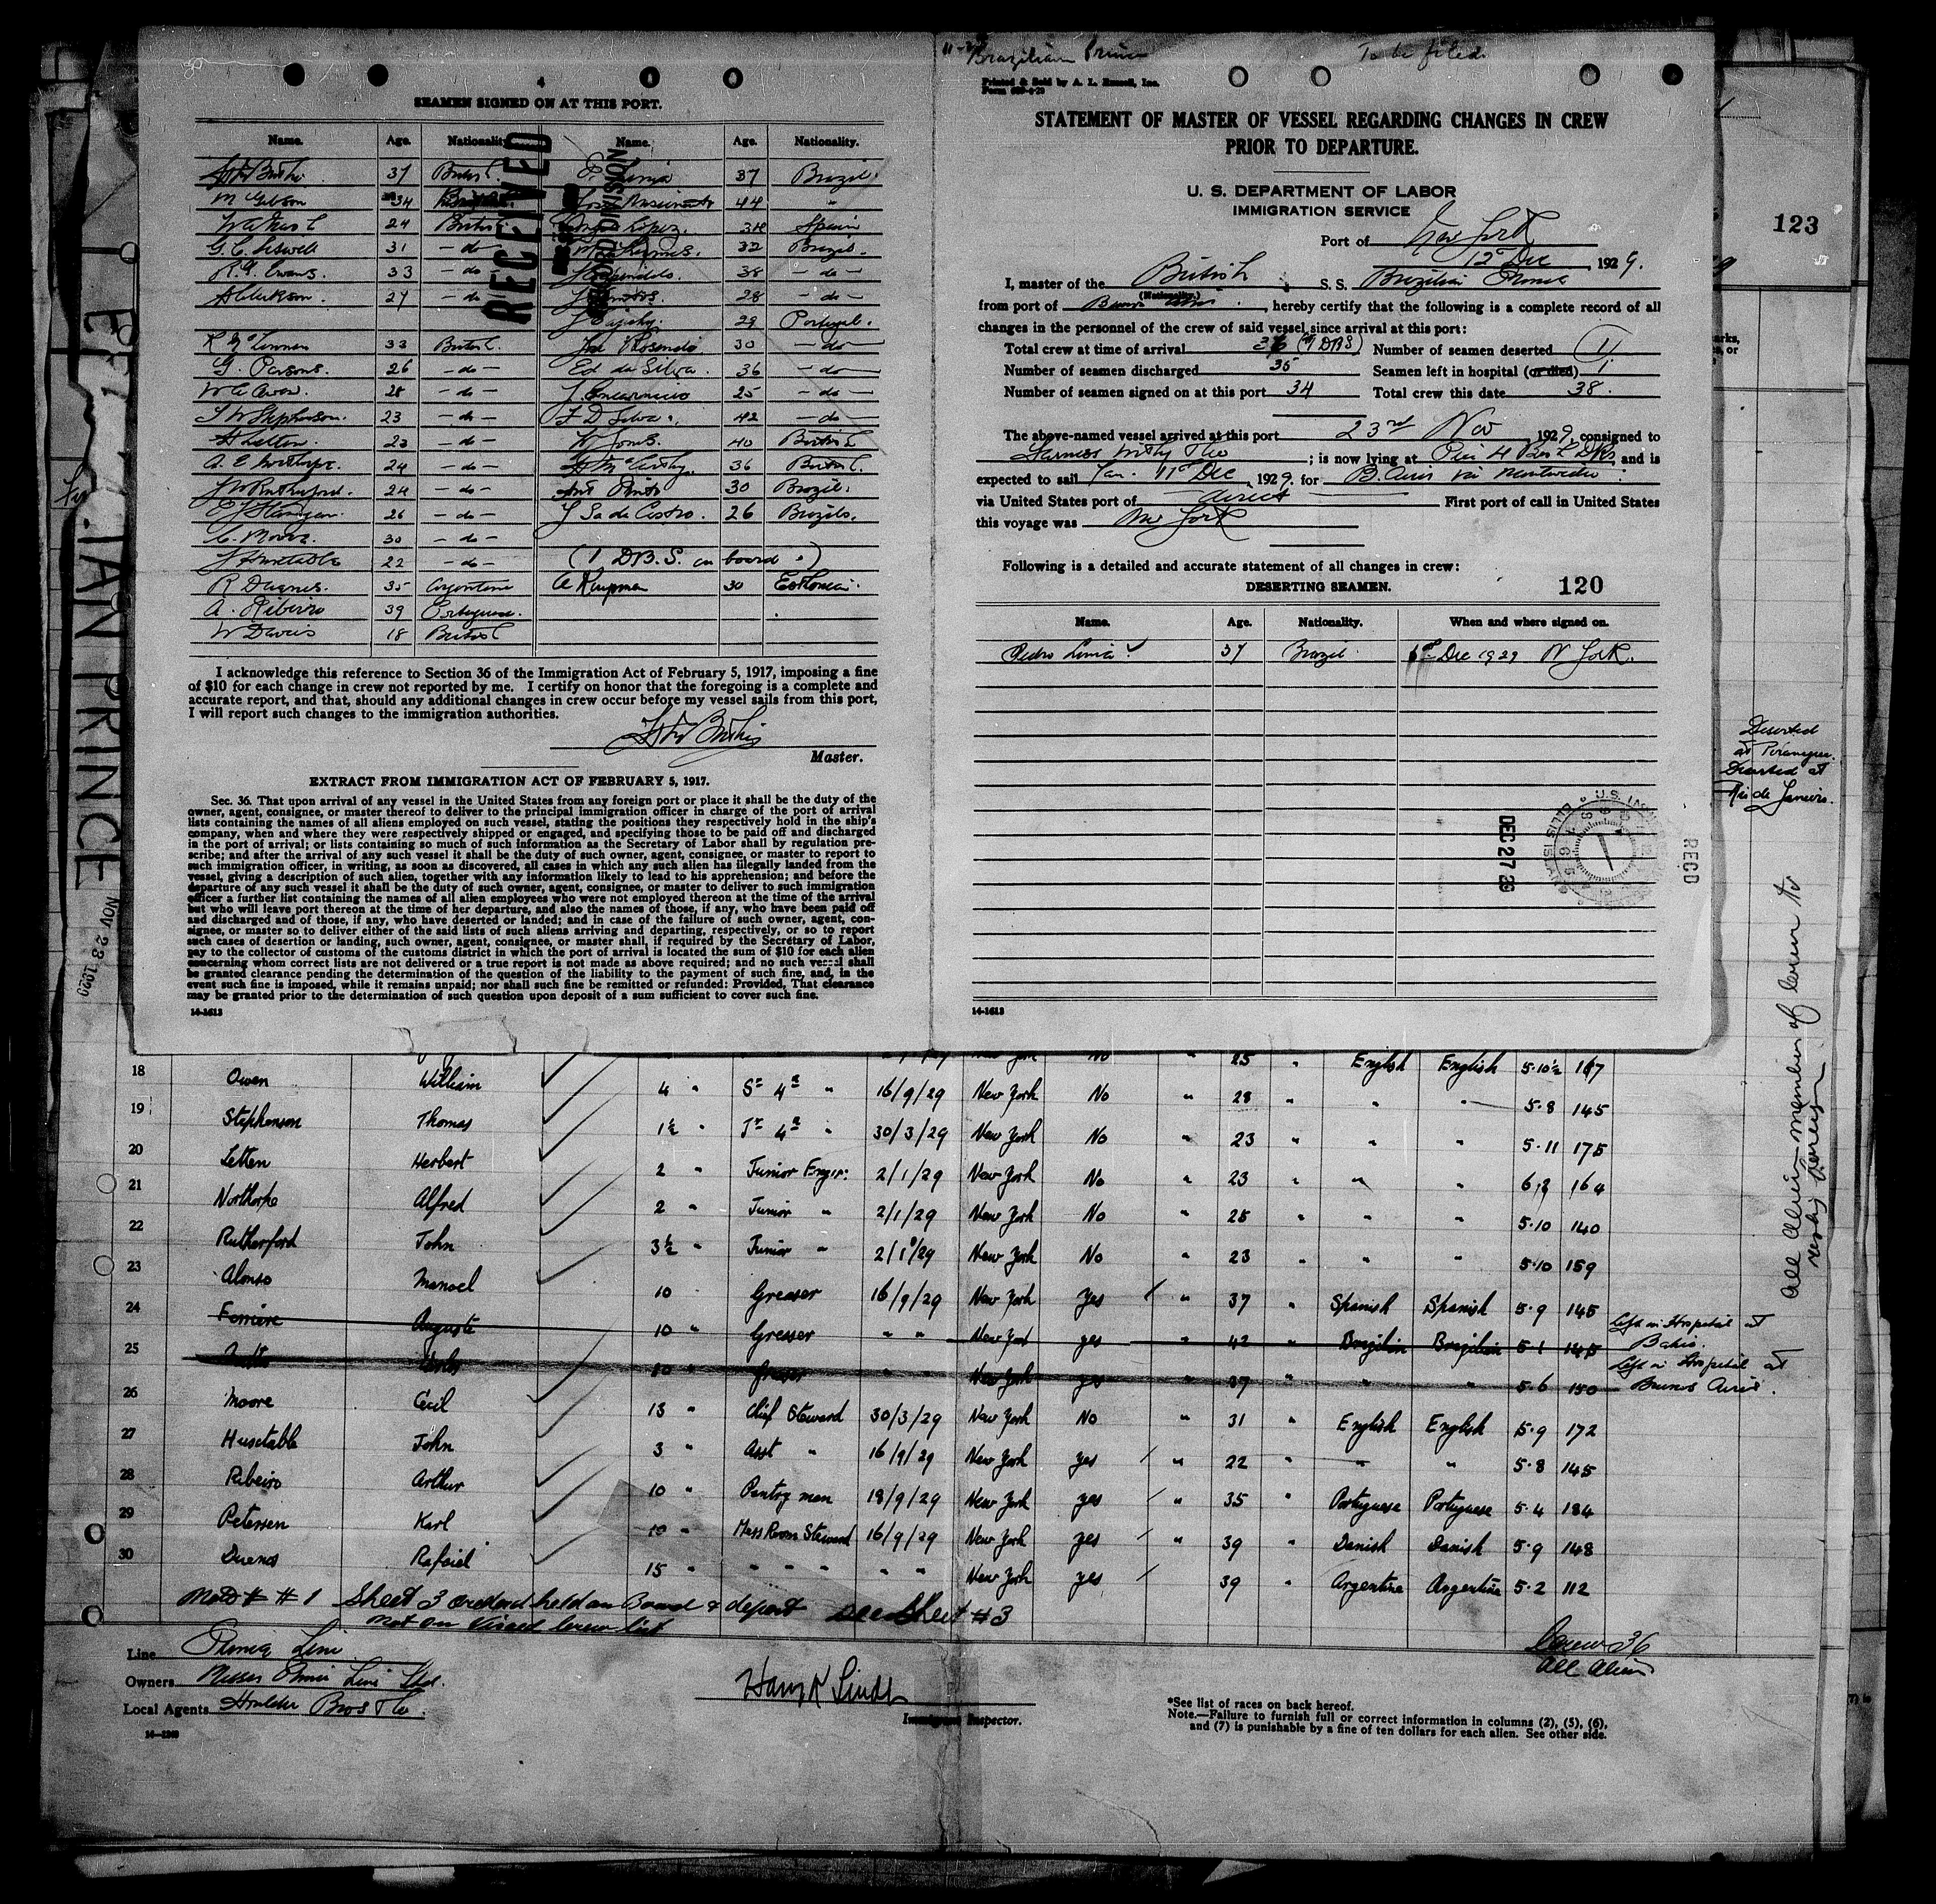 4
SEAMEN SIGNED ON AT THIS PORT.
Name. Age. Nationality. Name. Age. Nationality.
37 British 37 Brazil.
M Gibson 34 44 "
24 British Lopez. 34 Spain
31 - do - 32 Brazil.
R. Evans. 33 - do - 38 - do -
27 - do 28 - do -
29 Portugal.
33 British Rosendo 30 - do -
G. Parsons. 26 - do - Ed da Silva. 36 - do -
28 - do - 25 - do -
T W Stephenson. 23 - do - F D Silva. 42 - do -
H Letten. 23 - do - W Jones. 40 British
A. E Northorpe. 24 - do - McCarthy. 36 British
J W Rutherford. 24 - do - Pinto 30 Brazil.
26 - do - J Sa de Castro. 26 Brazil.
C. Moore. 30 - do -
J Huxtable 22 - do - (1 D.B.S. on board.)
R Duenes. 35 Argentine A 30 Esthonia.
A. Ribeiro 39 Portuguese.
W Davis 18 British
RECEIVED
RECORD DIVISION
I acknowledge this reference to Section 36 of the Immigration Act of February 5, 1917, imposing a fine
of $10 for each change in crew not reported by me. I certify on honor that the foregoing is a complete and
accurate report, and that, should any additional changes in crew occur before my vessel sails from this port,
I will report such changes to the immigration authorities.
Master.
EXTRACT FROM IMMIGRATION ACT OF FEBRUARY 5, 1917.
Sec. 36. That upon arrival of any vessel in the United States from any foreign port or place it shall be the duty of the
owner, agent, consignee, or master thereof to deliver to the principal immigration officer in charge of the port of arrival
lists containing the names of all aliens employed on such vessel, stating the positions they respectively hold in the ship's
company, when and where they were respectively shipped or engaged, and specifying those to be paid off and discharged
in the port of arrival; or lists containing so much of such information as the Secretary of Labor shall by regulation pre-
scribe; and after the arrival of any such vessel it shall be the duty of such owner, agent, consignee, or master to report to
such immigration officer, in writing, as soon as discovered, all cases in which any such alien has illegally landed from the
vessel, giving a description of such alien, together with any information likely to lead to his apprehension; and before the
departure of any such vessel it shall be the duty of such owner, agent, consignee, or master to deliver to such immigration
officer a further list containing the names of all alien employees who were not employed thereon at the time of the arrival
but who will leave port thereon at the time of her departure, and also the names of those, if any, who have been paid off
and discharged and of those, if any, who have deserted or landed; and in case of the failure of such owner, agent, con-
signee, or master so to deliver either of the said lists of such aliens arriving and departing, respectively, or so to report
such cases of desertion or landing, such owner, agent, consignee, or master shall, if required by the Secretary of Labor,
pay to the collector of customs of the customs district in which the port of arrival is located the sum of $10 for each alien
concerning whom correct lists are not delivered or a true report is not made as above required; and no such vessel shall
be granted clearance pending the determination of the question of the liability to the payment of such fine, and, in the
event such fine is imposed, while it remains unpaid; nor shall such fine be remitted or refunded: Provided, That clearance
may be granted prior to the determination of such question upon deposit of a sum sufficient to cover such fine.
14-1613
Brazilian Prince To be filed.
Printed & Sold by A. L. Russell, Inc.
STATEMENT OF MASTER OF VESSEL REGARDING CHANGES IN CREW
PRIOR TO DEPARTURE.
U. S. DEPARTMENT OF LABOR
IMMIGRATION SERVICE
Port of New York
12 Dec, 1929.
I, master of the British S. S. Brazilian Prince
(Nationality.)
from port of Buenos Aires, hereby certify that the following is a complete record of all
changes in the personnel of the crew of said vessel since arrival at this port:
Total crew at time of arrival 36 (1 DBS) Number of seamen deserted 1
Number of seamen discharged 35 Seamen left in hospital (or died) 1
Number of seamen signed on at this port 34 Total crew this date 38.
The above-named vessel arrived at this port 23rd Nov, 1929, consigned to
Furness Withy & Co; is now lying at Pier 4 and is
expected to sail 11th Dec, 1929. for B. Aires via Montevideo
via United States port of direct First port of call in United States
this voyage was New York
Following is a detailed and accurate statement of all changes in crew:
DESERTING SEAMEN. 120
Name. Age. Nationality. When and where signed on.
Pedro Lima 37 Brazil Dec 1929 N York.
DEC 27 29
REC'D
14-1613
123
Deserted
at
Deserted at
Rio de Janeiro.
All Alien members of crew to
PRINCE
NOV 23 1929
25 " English English 5·10½ 167
18 Owen William 4 " Sr 4th " 16/9/29 New York No " 28 " " " 5·8 145
19 Stephenson Thomas 1½ " Jr 4th " 30/3/29 New York No " 23 " " " 5·11 175
20 Letten Herbert 2 " Junior Engr: 2/1/29 New York No " 23 " " " 6,2 164
21 Northorpe Alfred 2 " Junior " 2/1/29 New York No " 25 " " " 5·10 140
22 Rutherford John 3½ " Junior " 2/1/29 New York No " 23 " " " 5·10 159
23 Alonso Manoel 10 Greaser 16/9/29 New York Yes " 37 " Spanish Spanish 5·9 145
24 Ferreira Augusto 10 " Greaser " " New York yes " 42 " Brazilian Brazilian 5·1 145 Left in Hospital at Bahia.
25 10 " Greaser " " New York yes " 37 " " " 5·6 150 Left in Hospital at Buenos Aires.
26 Moore Cecil 13 " Chief Steward 30/3/29 New York No " 31 " English English 5·9 172
27 Huxtable John 3 " Asst " 16/9/29 New York yes " 22 " " " 5·8 145
28 Ribeiro Arthur 10 " Pantry man 18/9/29 New York yes " 35 " Portuguese Portuguese 5·4 184
29 Petersen Karl 10 " Mess Room Steward 16/9/29 New York yes " 39 " Danish Danish 5·9 148
30 Duenas Rafaiel 15 " " " " " New York yes 39 " Argentine Argentine 5·2 112
Note # 1 Sheet 3 ordered held on Board & deport see Sheet #3
not on Visaed crew list
Crew 36
All Alien
Line Prince Line
Owners Messrs Prince Line Ltd.
Local Agents Houlder Bros & Co.
14-1240
Inspector.
*See list of races on back hereof.
Note.—Failure to furnish full or correct information in columns (2), (5), (6),
and (7) is punishable by a fine of ten dollars for each alien. See other side.